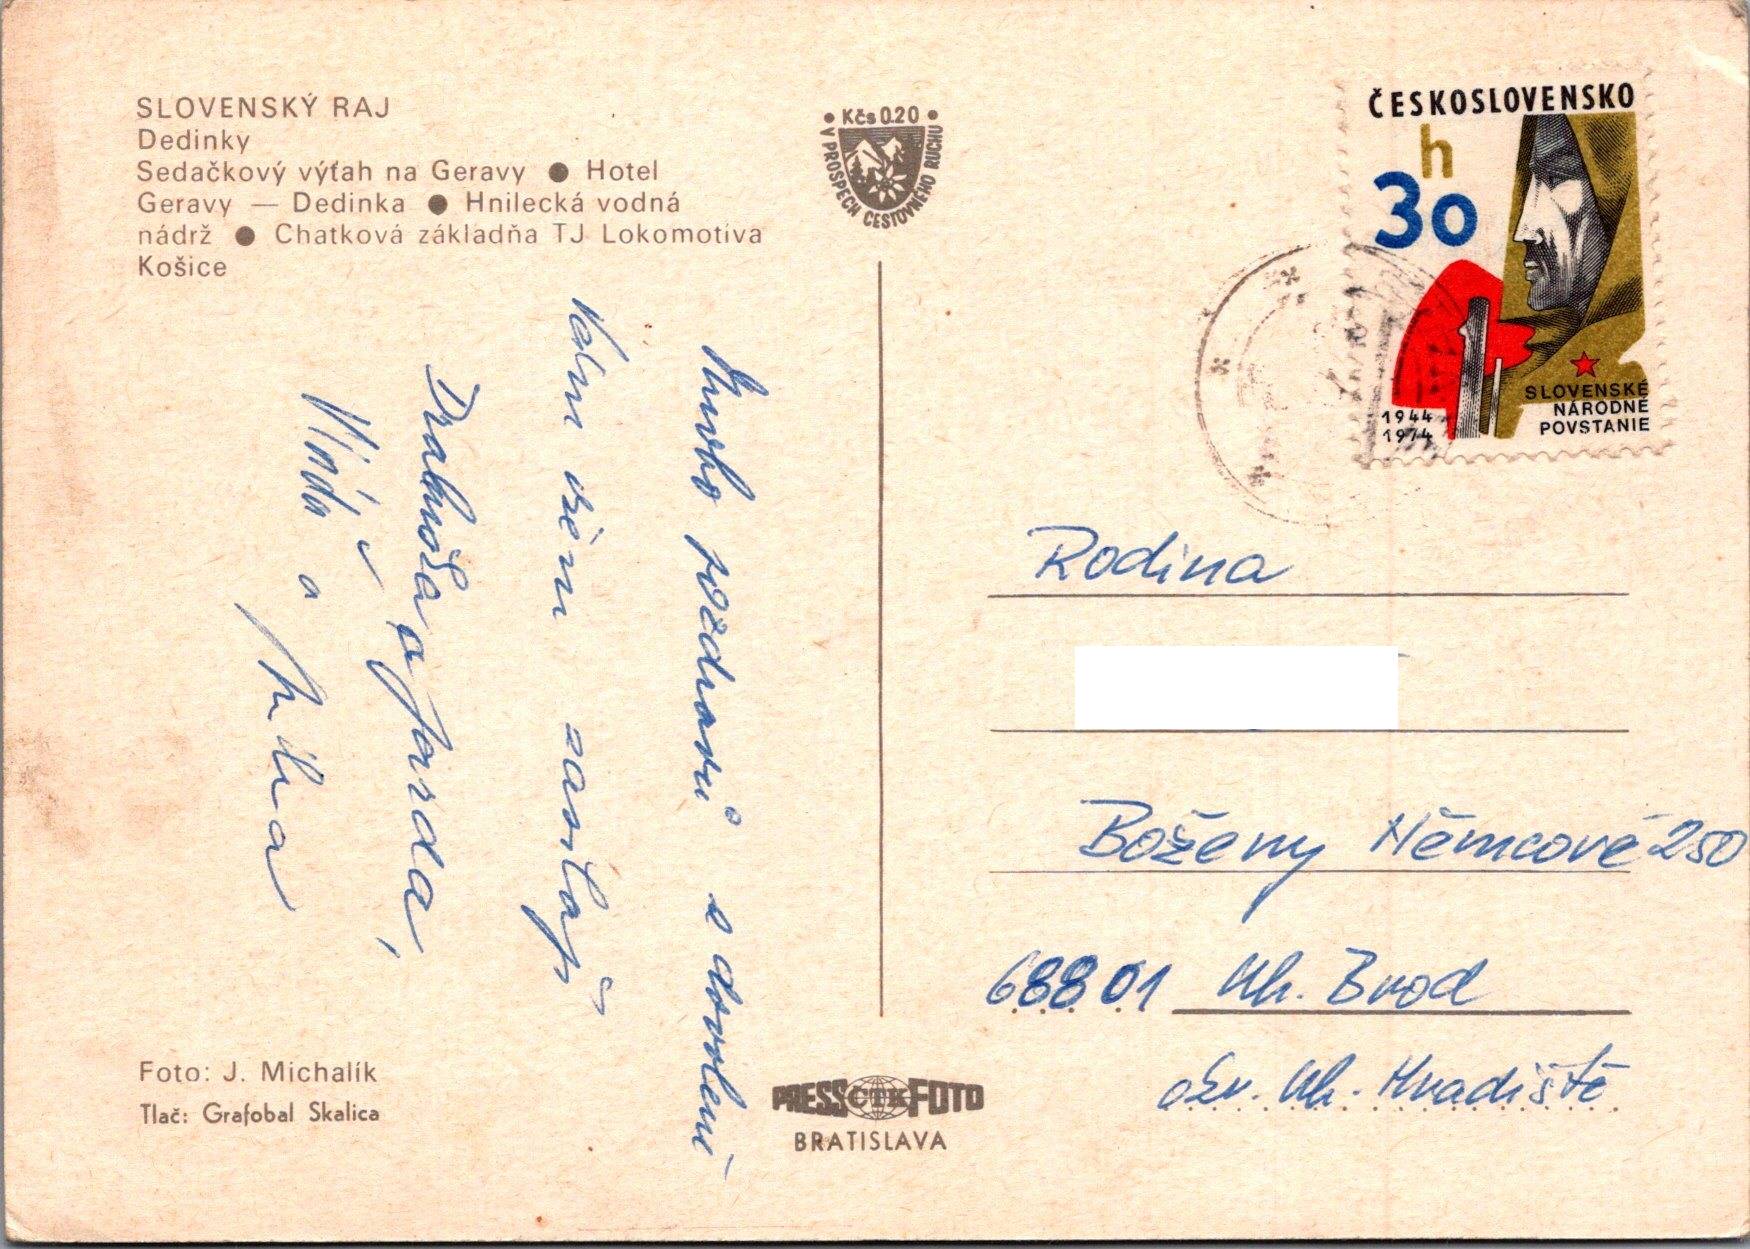 SLOVENSKÝ RAJ
Dedinky
Sedačkový výťah na Geravy ● Hotel
Geravy — Dedinka ● Hnilecká vodná
nádrž ● Chatková základňa TJ Lokomotíva
Košice
Kčs 0.20
V PROSPECH CESTOVNÉHO RUCHU
ČESKOSLOVENSKO
h
30
1944
1974
SLOVENSKÉ
NÁRODNÉ
POVSTANIE
Mnoho pozdravů s dovolení
Vám všem zasílají
a Jarda,
a
Rodina
Boženy Němcové 250
68801 Uh. Brod
okr. Uh. Hradiště
Foto: J. Michalík
Tlač: Grafobal Skalica
PRESS ČTK FOTO
BRATISLAVA